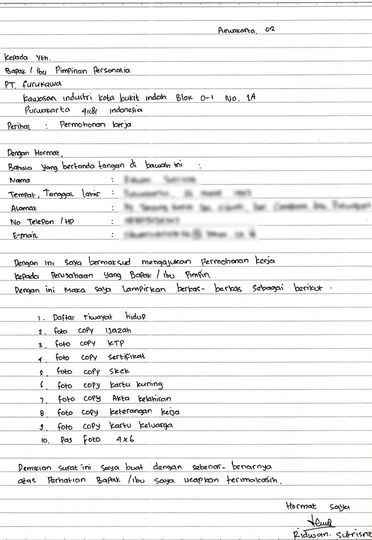 Purwakarta, 02
Kepada Yth.
Bapak / Ibu Pimpinan Personalia
PT. Furukawa
Kawasan industri kota bukit indah Blok D-1 No. 1A
Purwakarta 41181 indonesia
Perihal : Permohonan kerja
Dengan Hormat,
Bahwa yang bertanda tangan di bawah ini :
Nama :
Tempat, Tanggal lahir :
Alamat :
No Telepon / HP :
E-mail :
Dengan ini saya bermaksud mengajukan Permohonan kerja
kepada Perusahaan yang Bapak / Ibu Pimpin.
Dengan ini Maka saya Lampirkan berkas-barkas sebagai berikut.
1. Daftar riwayat hidup
2. foto copy Ijazah
3. foto copy KTP
4. foto copy sertifikat
5. foto copy Skck
6. foto copy kartu kuning
7. foto copy Akta kelahiran
8. foto copy keterangan kerja
9. foto copy kartu keluarga
10. Pas foto 4x6
Demikian surat ini saya buat dengan sebenar-benarnya
atas Perhatian Bapak / Ibu saya ucapkan terimakasih.
Hormat saya
Ridwan Sutrisno